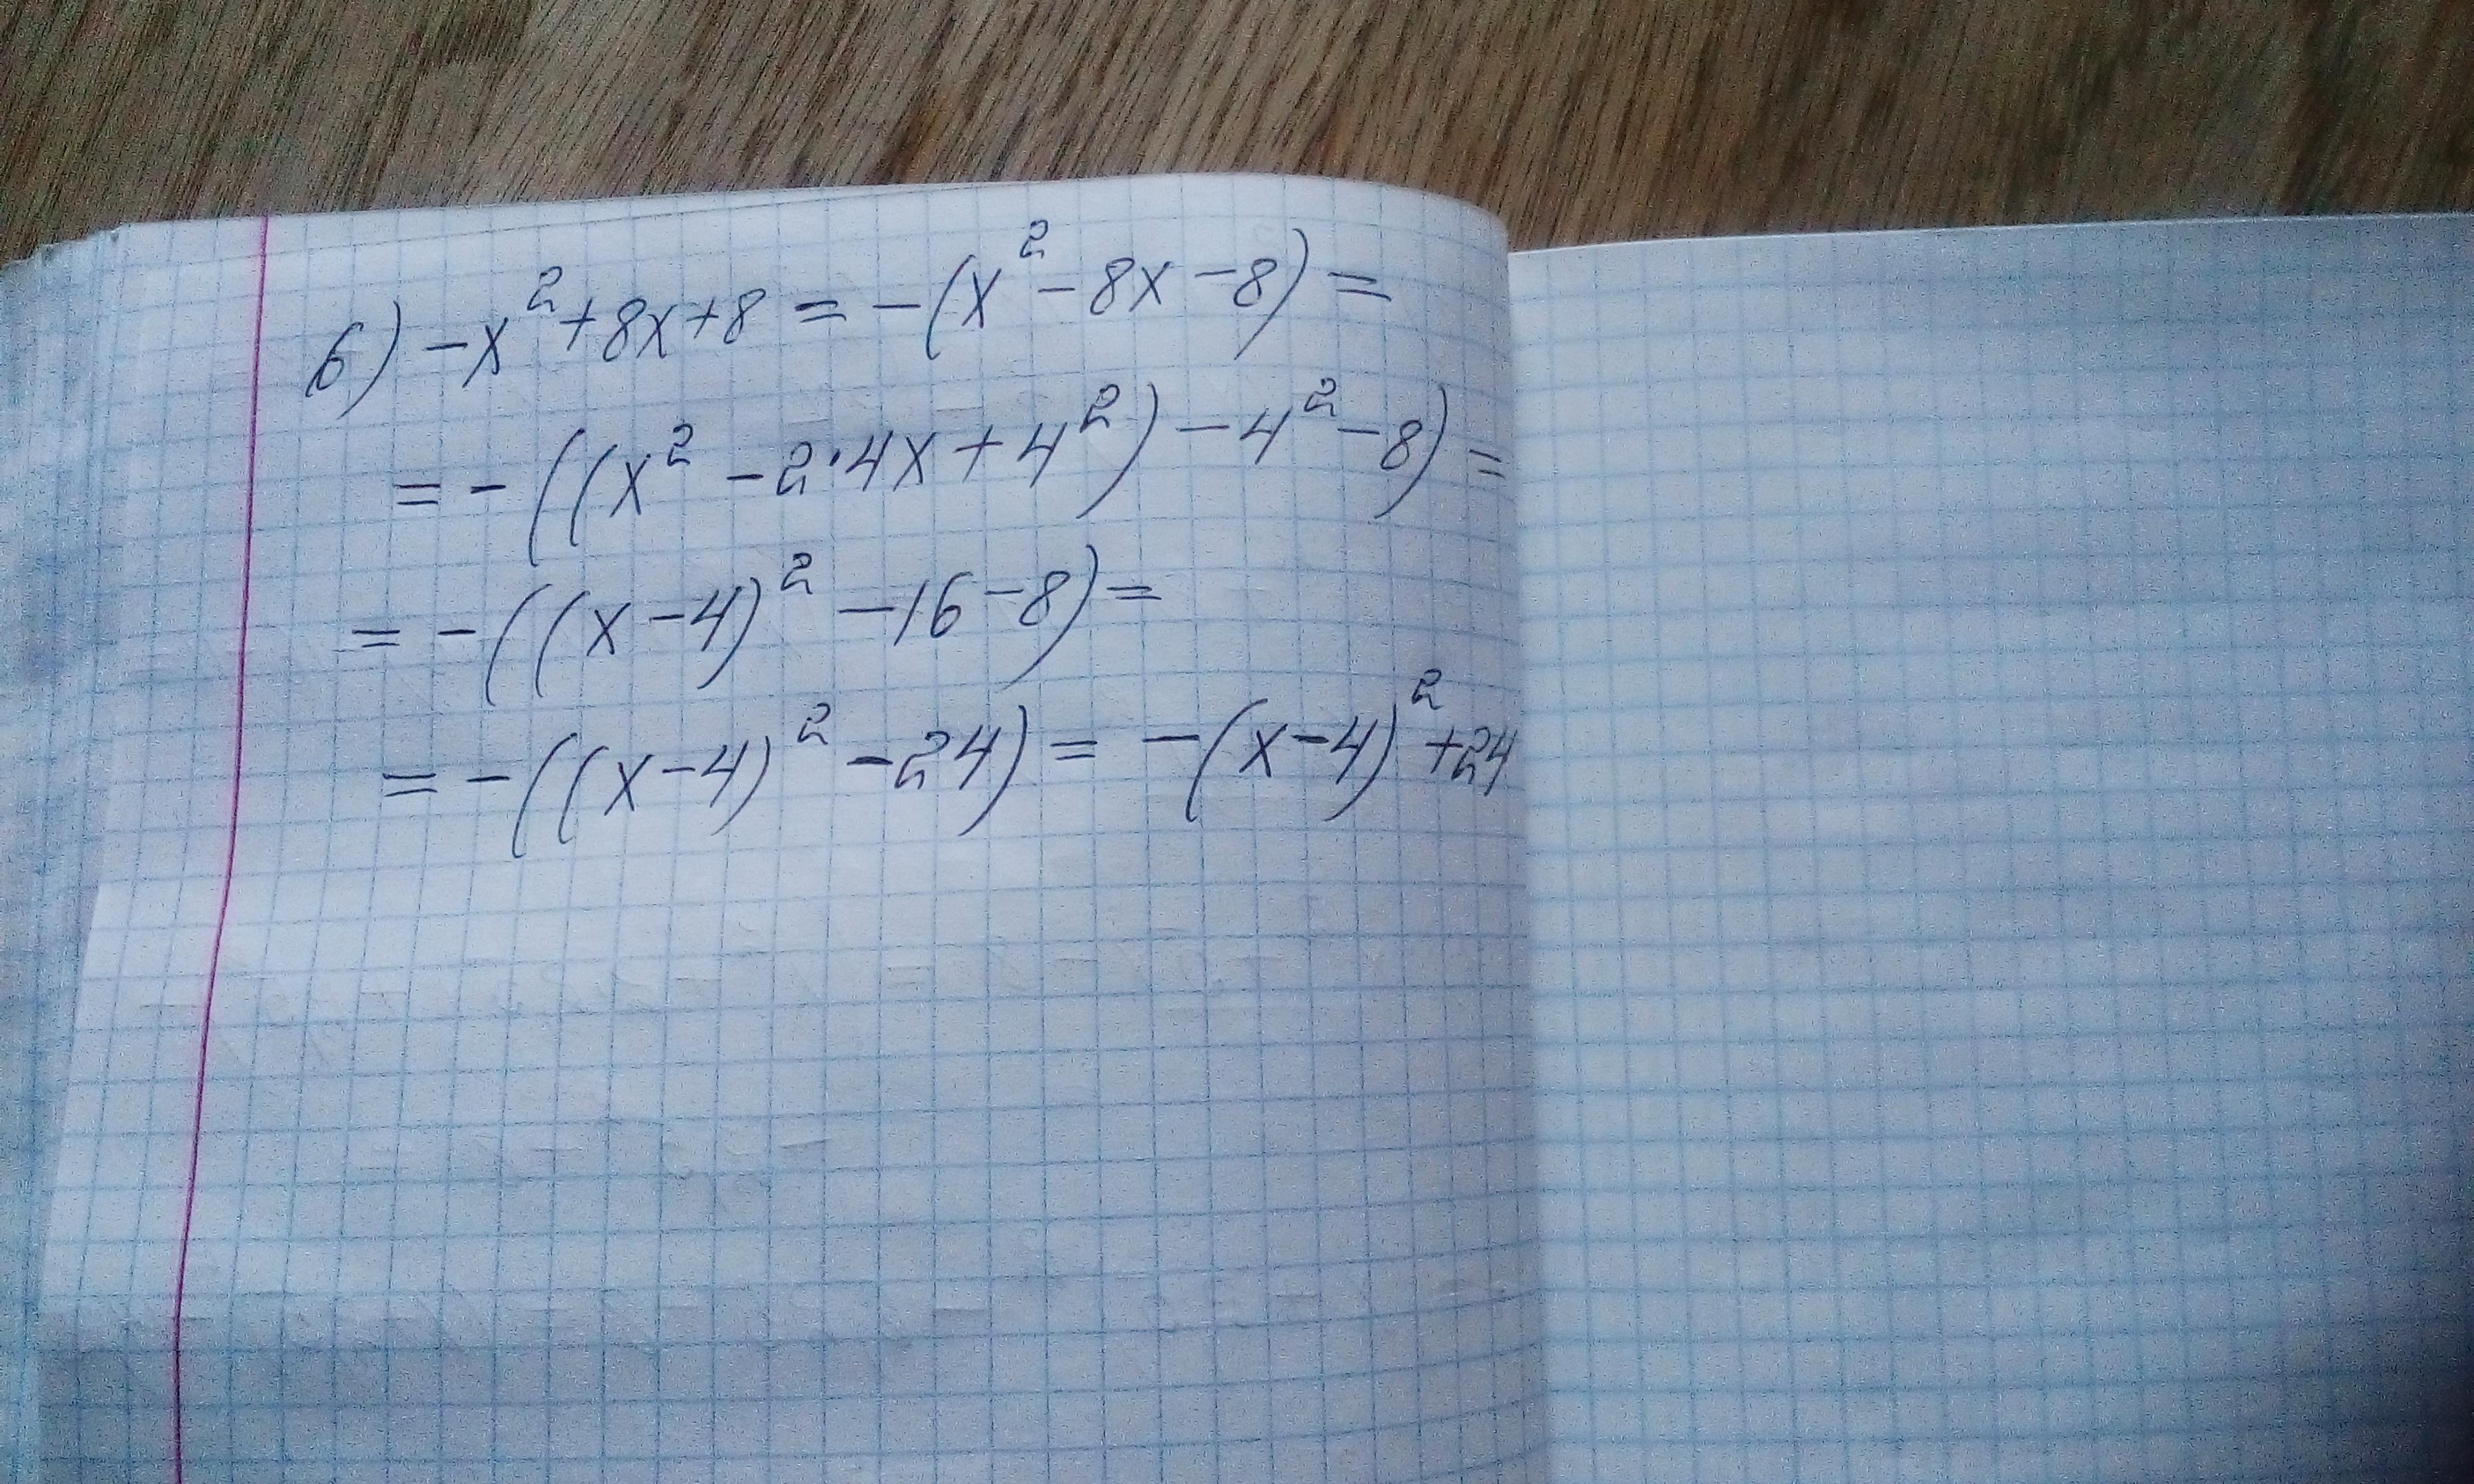 б) -x²+8x+8 = -(x²-8x-8) =
= -((x²-2·4x+4²)-4²-8) =
= -((x-4)²-16-8) =
= -((x-4)²-24) = -(x-4)²+24